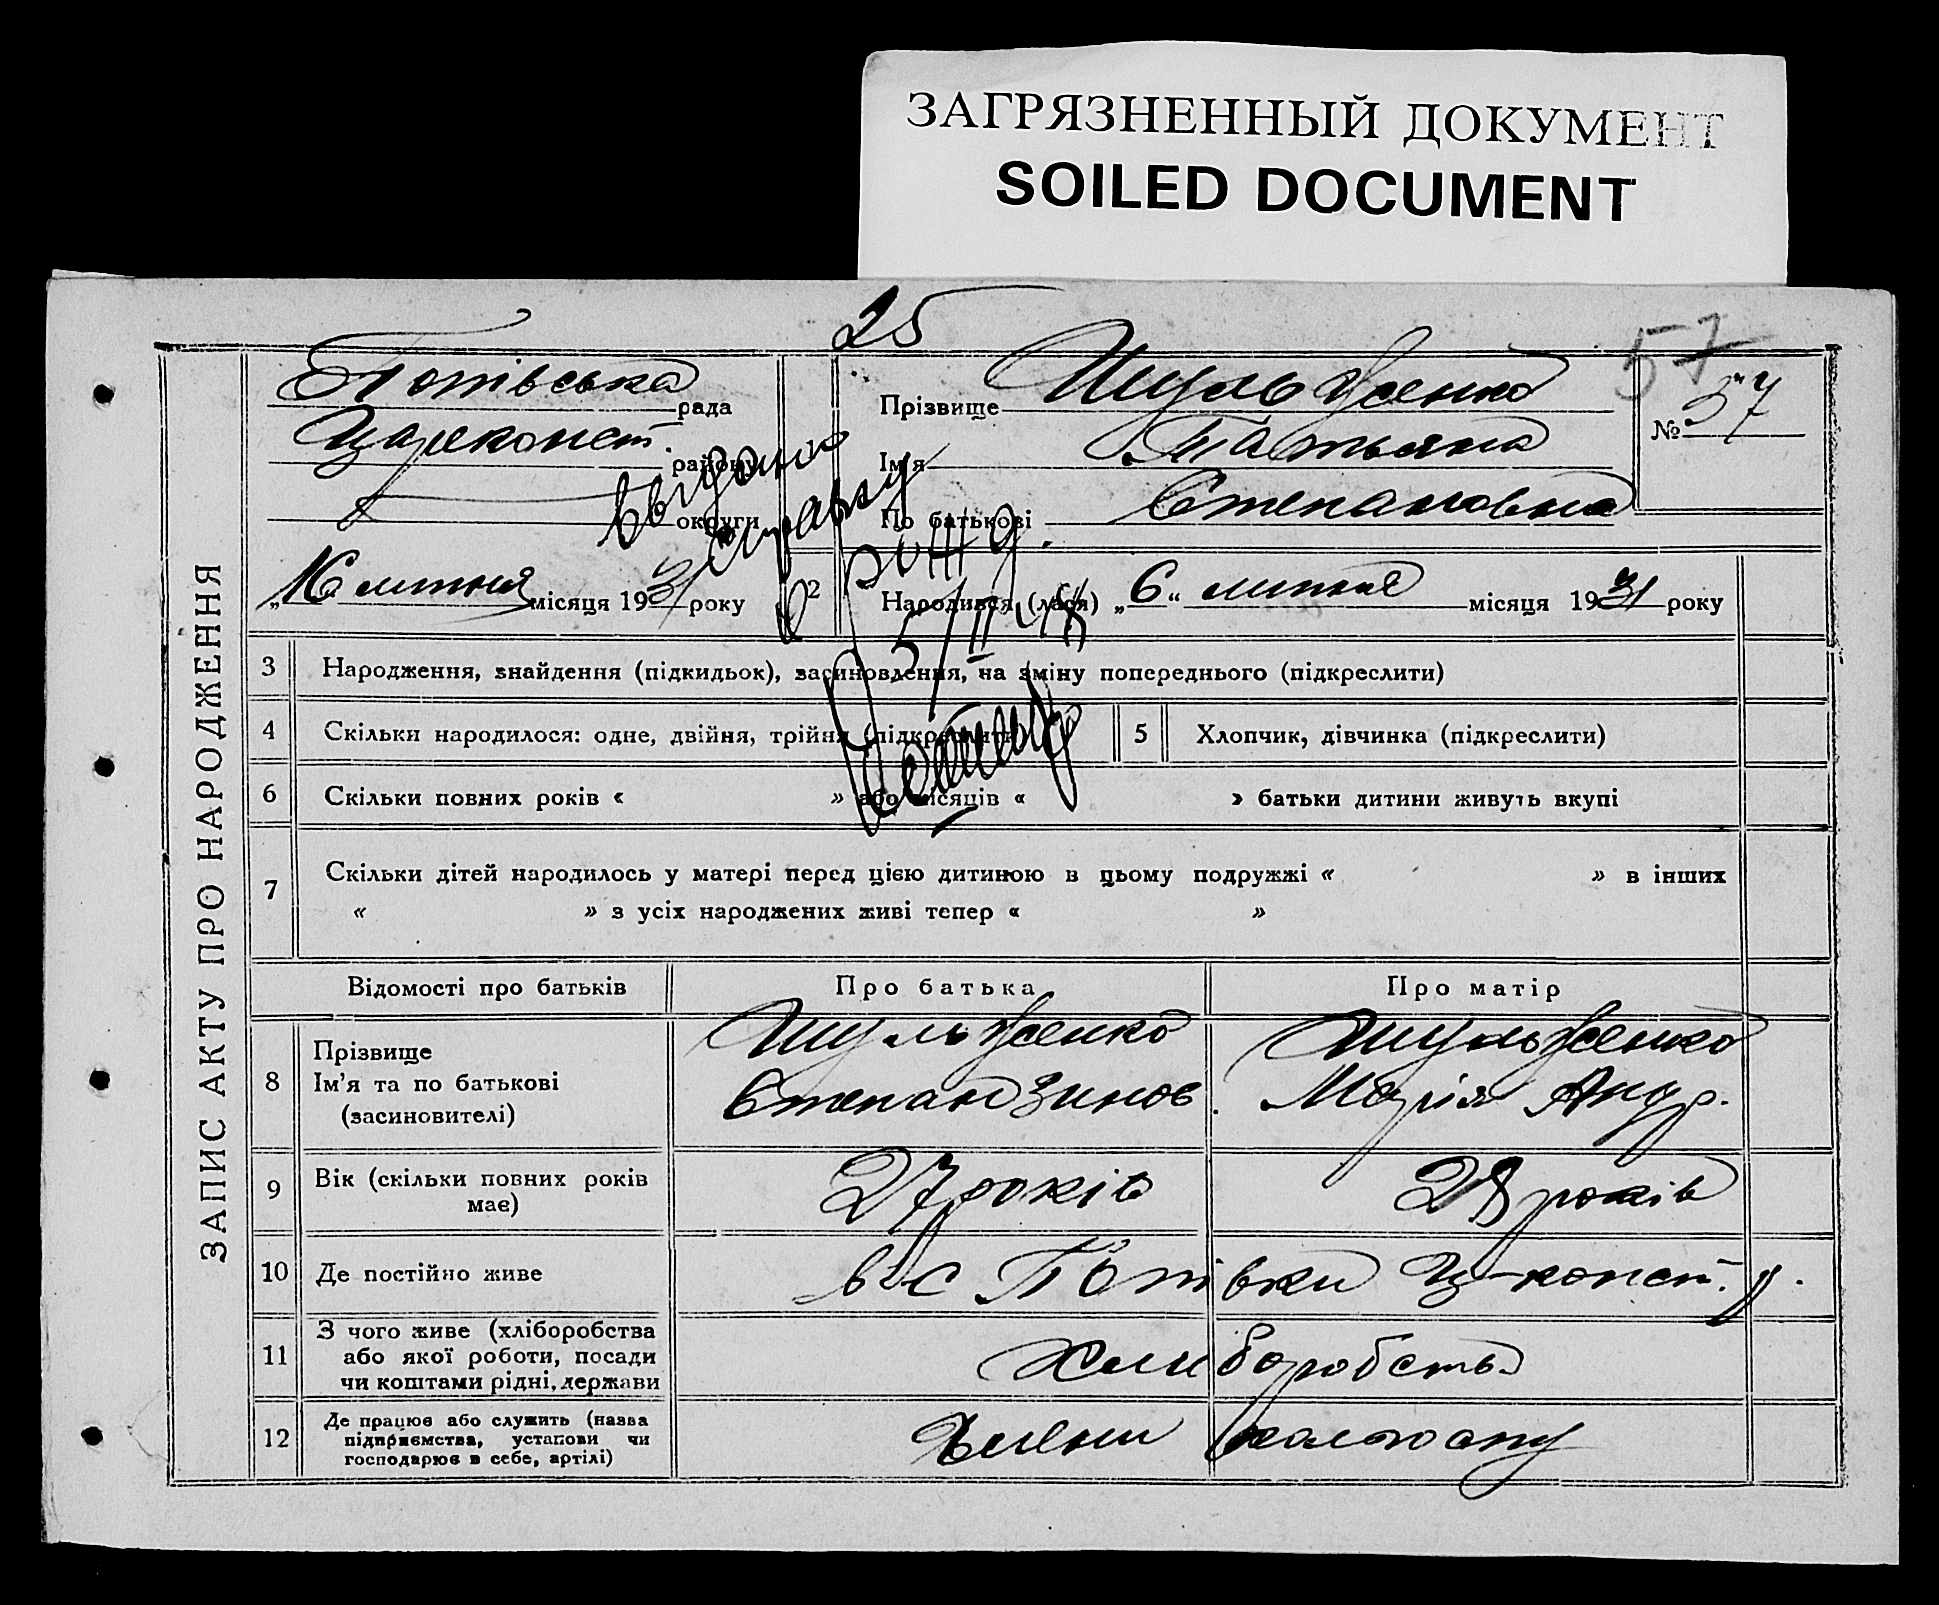 ЗАГРЯЗНЕННЫЙ ДОКУМЕНТ
SOILED DOCUMENT
25
57
ЗАПИС АКТУ ПРО НАРОДЖЕННЯ
Потівська рада
Цареконст. району
округи
„16 липня місяця 1931 року
Прізвище Шульженко
Ім'я Татьяна
По батькові Степановна
№ 57
2 Народився (лася) „6“ липня місяця 1931 року
Выдано
справку
рожд.
5/II
3 Народження, знайдення (підкидьок), засиновлення, на зміну попереднього (підкреслити)
4 Скільки народилося: одне, двійня, трійня (підкреслити)
5 Хлопчик, дівчинка (підкреслити)
6 Скільки повних років « » або місяців « » батьки дитини живуть вкупі
7 Скільки дітей народилось у матері перед цією дитиною в цьому подружжі « » в інших
« » з усіх народжених живі тепер « »
Відомості про батьків Про батька Про матір
8 Прізвище
Ім'я та по батькові
(засиновителі)
Шульженко
Степан Зинов.
Шульженко
Марія Андр.
9 Вік (скільки повних років
має)
27 років 28 років
10 Де постійно живе в с Потівки Ц-конст. р.
11 З чого живе (хліборобства
або якої роботи, посади
чи коштами рідні, держави
Хлиборобств.
12 Де працює або служить (назва
підприємства, установи чи
господарює в себе, артілі)
Члени колгоспу